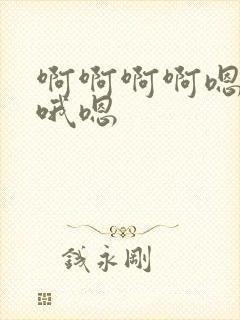 啊啊啊啊嗯
哦嗯
钱永刚